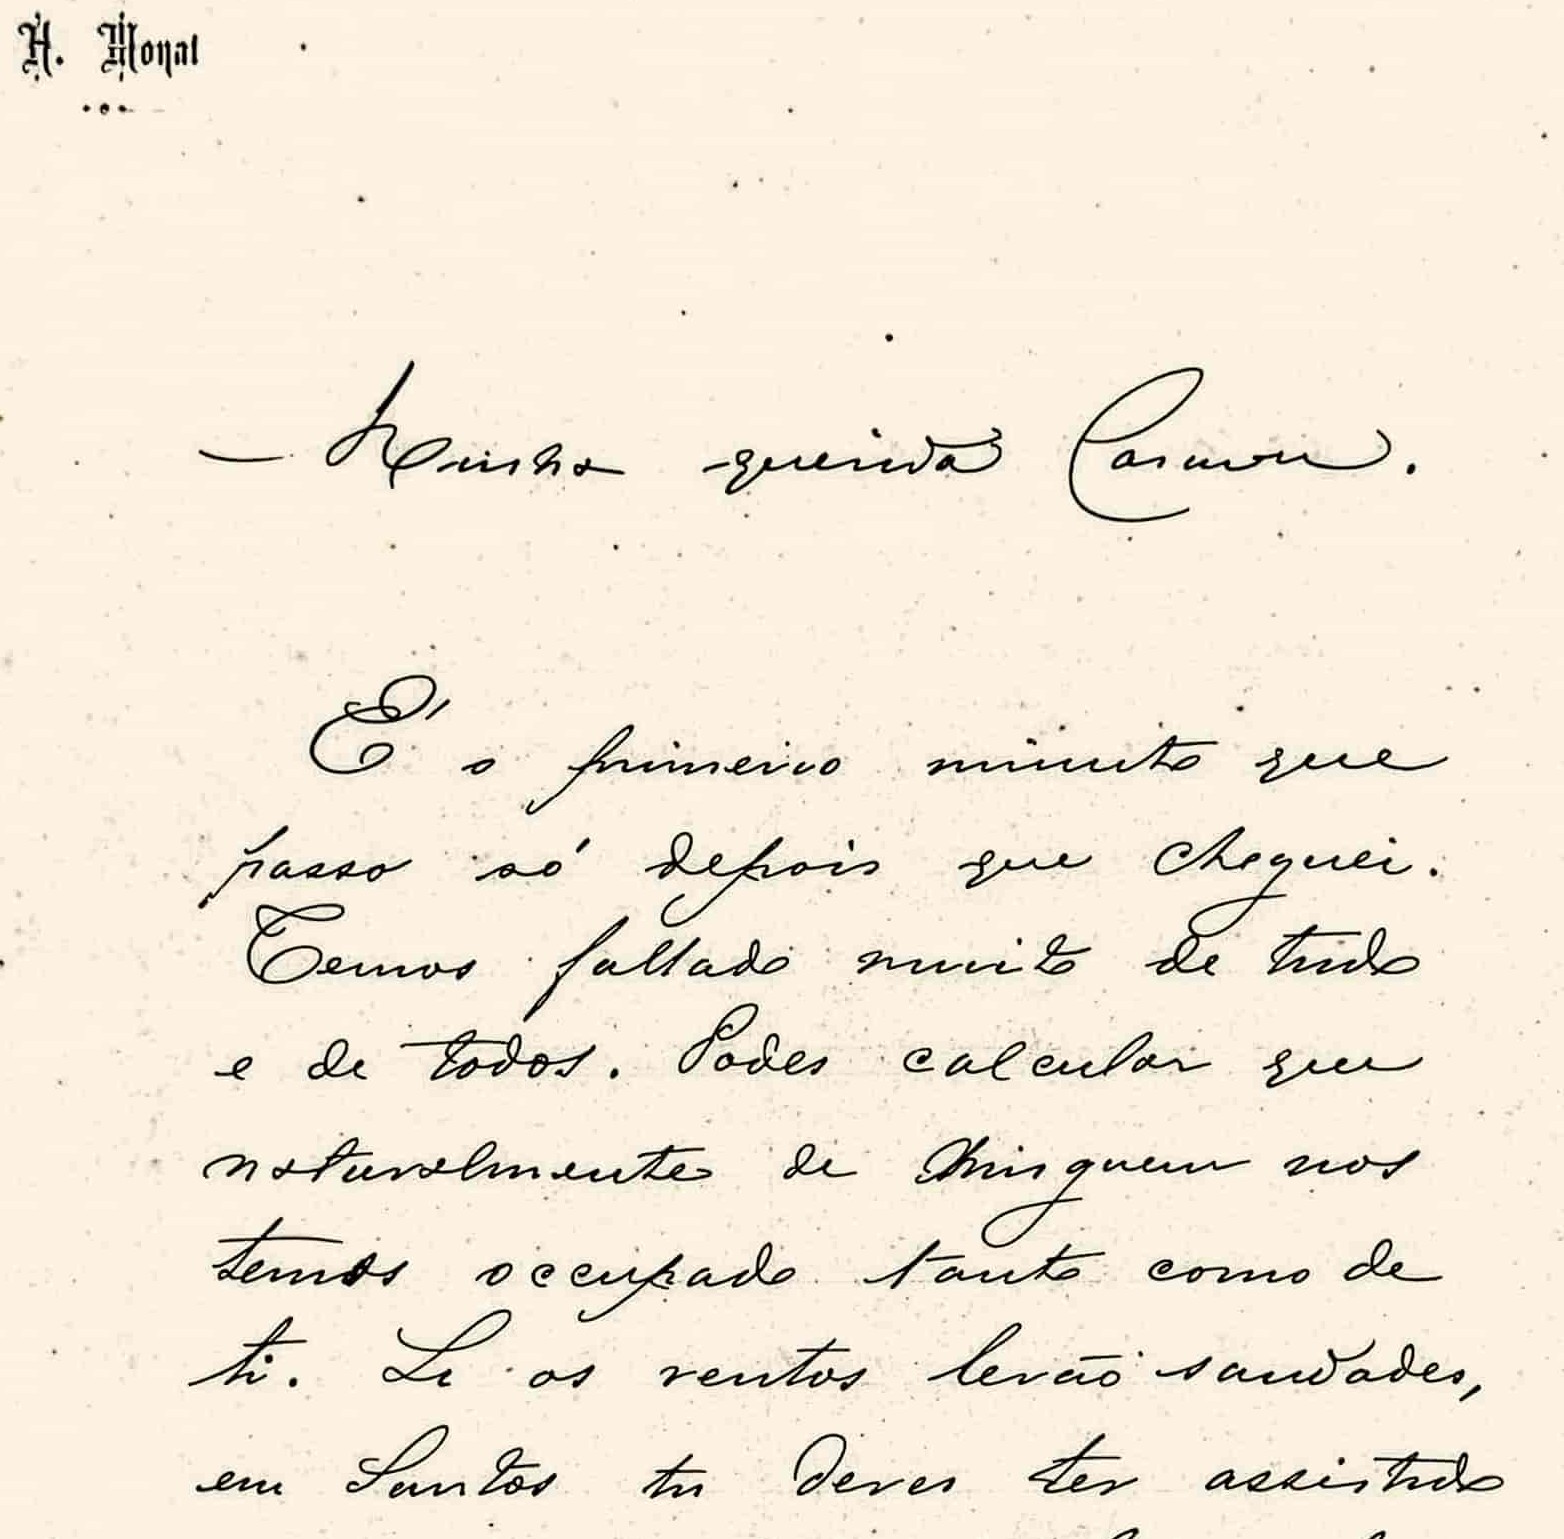 H. Monat
— Minha querida Carmen.
E' o primeiro minuto que
passo só depois que cheguei.
Temos fallado muito de tudo
e de todos. Podes calcular que
naturalmente de Ninguem nos
temos occupado tanto como de
ti. Se os ventos levão saudades,
em Santos tu deves ter assistido